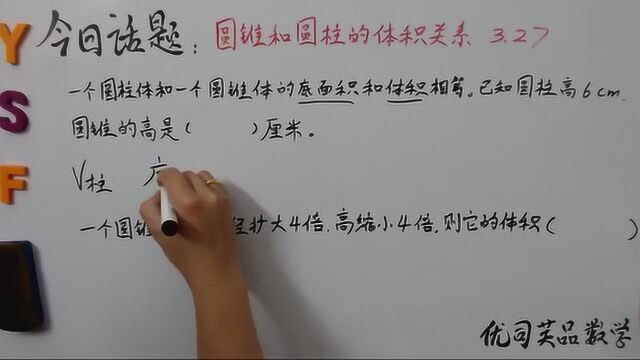 Y
S
F
今日话题: 圆锥和圆柱的体积关系 3.27
一个圆柱体和一个圆锥体的底面积和体积相等。已知圆柱高6cm.
圆锥的高是( )厘米。
V柱
一个圆锥 径扩大4倍.高缩小4倍.则它的体积( )
优司芙品数学